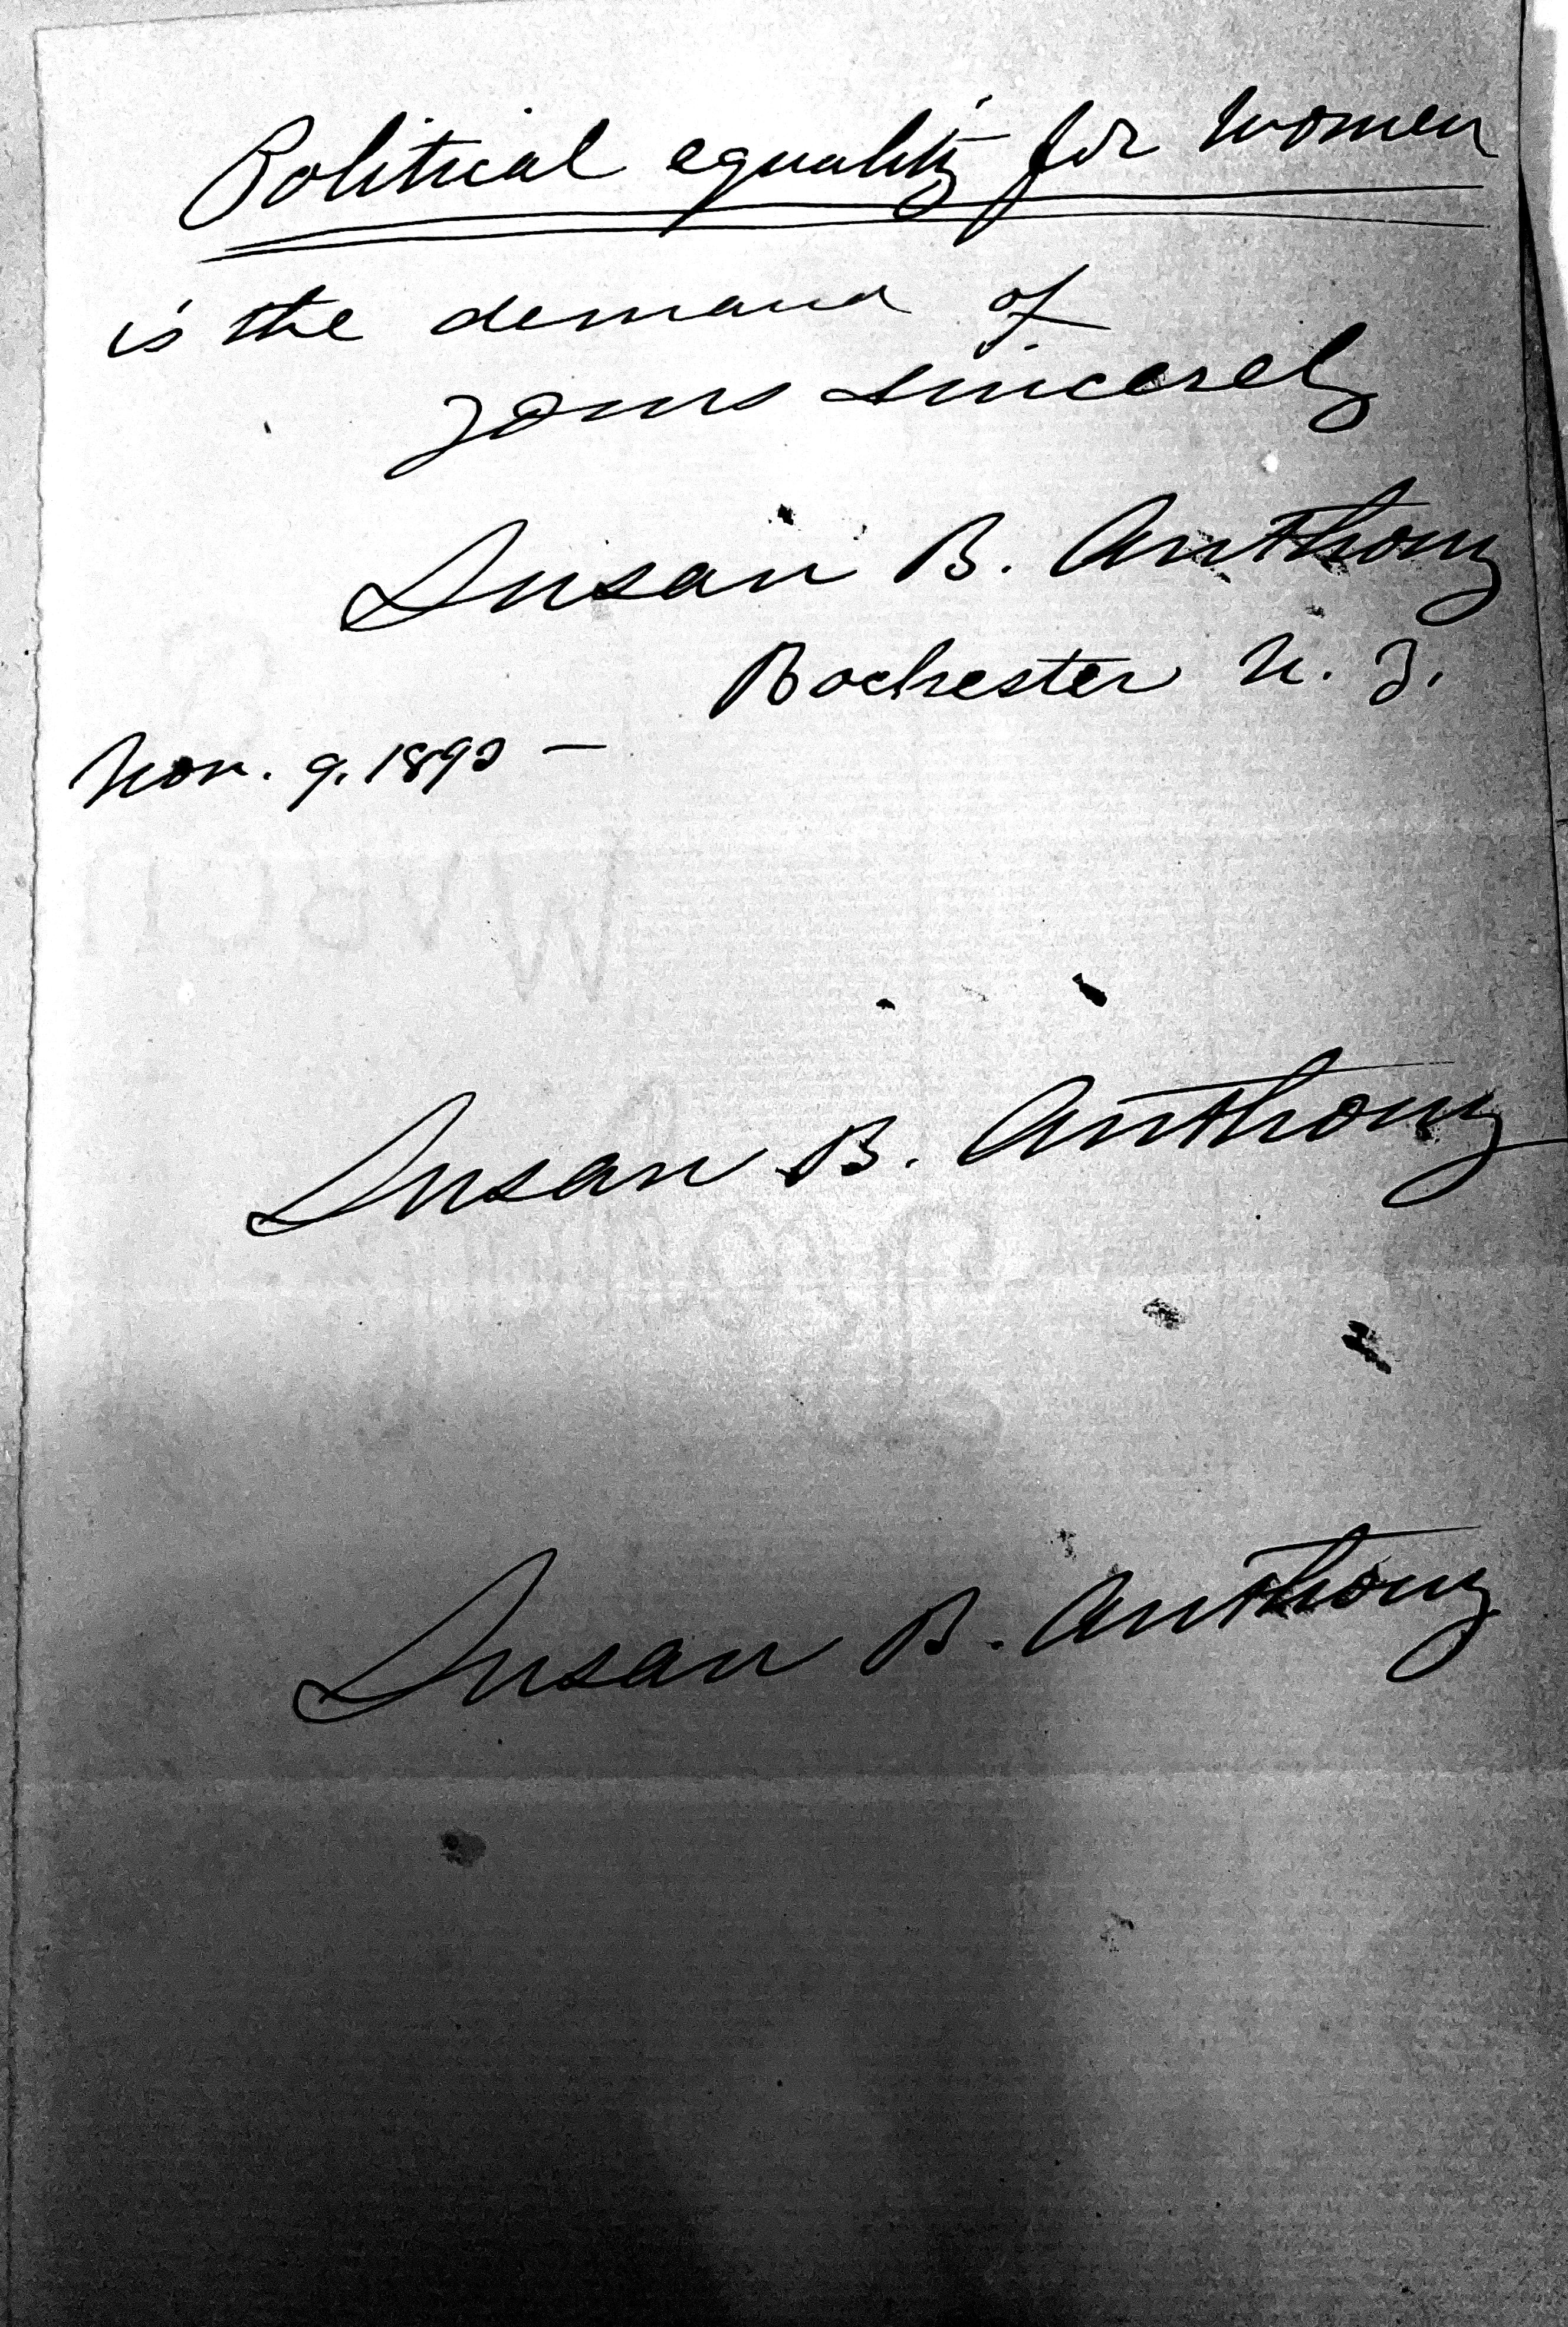 Political equality for women
is the demand of
yours sincerely
Susan B. Anthony
Rochester N. Y.
Nov. 9. 1893 —
Susan B. Anthony
Susan B. Anthony